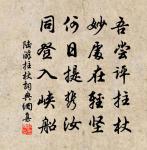 吾尝评拄杖
妙處在轻坚
何日提携汝
同登入峡船
陆游拄杖詞典網集